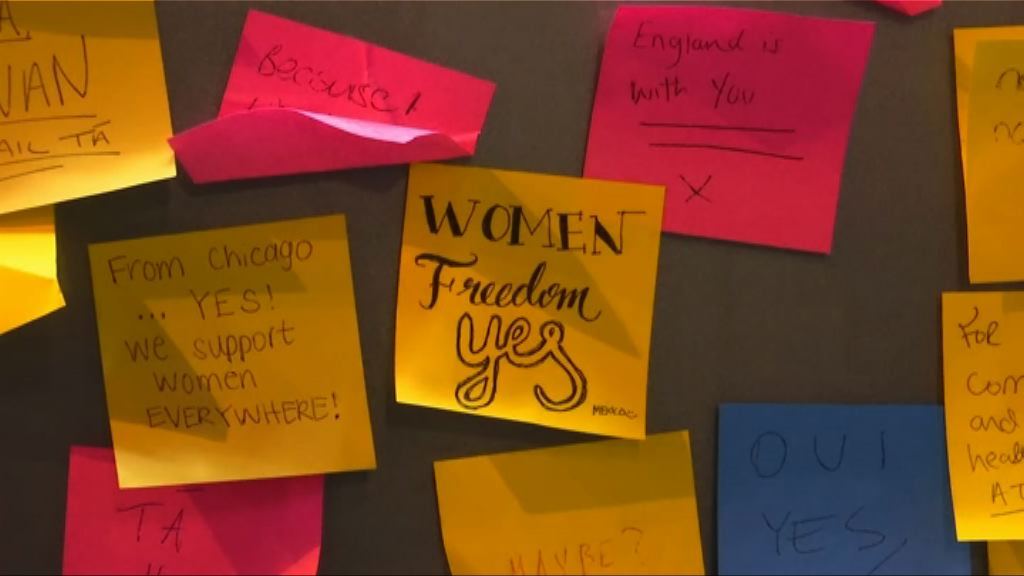 VAN
TÁ
Because!
England is
with you
X
WOMEN
Freedom
yes
From Chicago
... YES!
we support
women
EVERYWHERE!
FOR
and
TÁ
MAYBE?
OUI
YES,